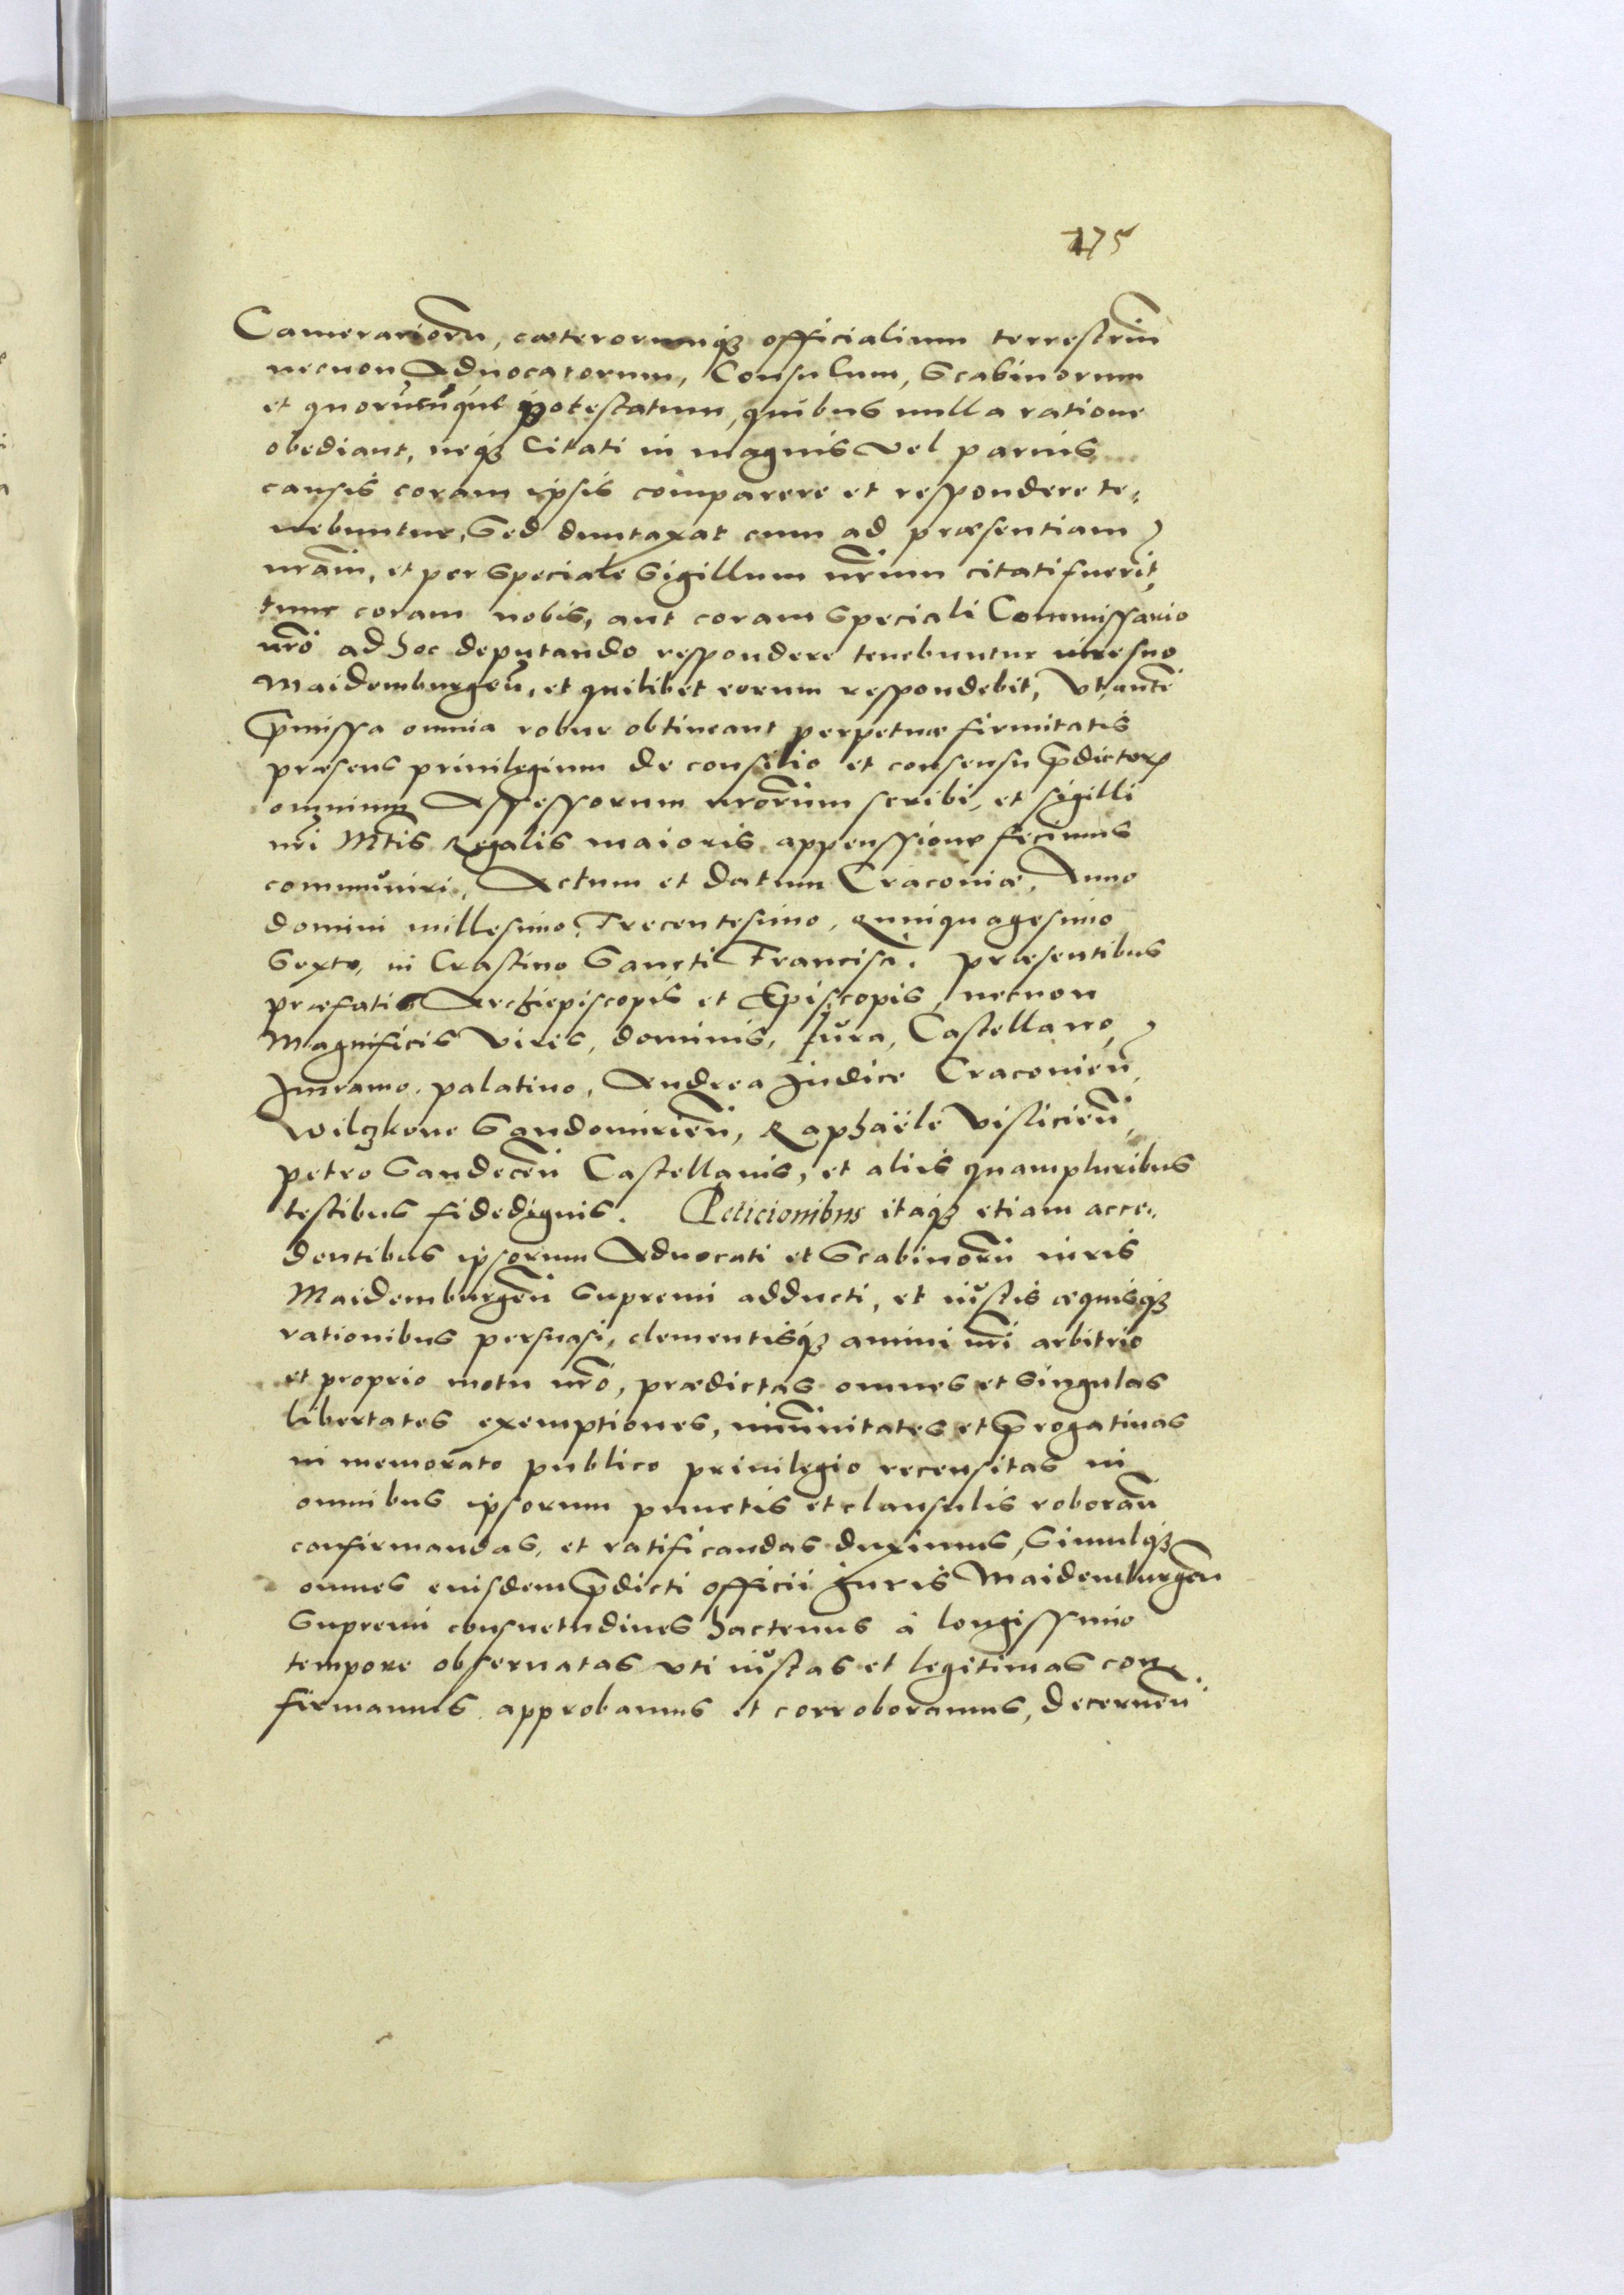 175
Camerarioru, cæterorumq́ꝫ officialium terrestriu̅
necnon Aduocatorum, Consulum, Scabinorum
et quorúcúque potestatum, quibus nulla ratione
obediant, neq́ꝫ Citati in magnis vel paruis
causis coram ipsis comparere et respondere te,
nebuntur, Sed duntaxat cum ad præsentiam
nr̅am, et per Speciale Sigillum nr̅um citati fueri̅t,
tunc coram nobis, aut coram Speciali Commissario
nr̅o ad hoc deputando respondere tenebuntur iure suo
Maidemburgen̅, et quilibet eorum respondebit, Vt aute̅
p̅missa omnia robur obtineant perpetuæ firmitatis
præsens priuilegium de consilio et consensu p̅dictorꝝ
omnium Assessorum nr̅orum scribi, et sigilli
nr̅i Mt̅is Regalis maioris appenssione fecimus
commŭniri, Actum et datum Cracoviæ, Anno
domini millesimo, Trecentesimo, Quinquagesimo
Sexto, in Crastino Sancti Francisci. præsentibus
præfatis Archiepiscopis et Episcopis, necnon
Magnificis Viris, dominis, Jŭra, Castellano,
Jmramo palatino, Andrea Judice Cracouien̅,
Wilczkone Sandomirien̅, Raphaële Vislicien̅,
petro Sandecen̅ Castellanis, et aliis quampluribus
testibus fidedignis. Peticionibus itaq́ꝫ etiam acce,,
dentibus ipsorum Aduocati et Scabinoru̅ iuris
Maidemburgen̅ Supremi adducti, et iŭstis æquisq́ꝫ
rationibus persuasi, clementisq́ꝫ animi nr̅i arbitrio
et proprio motu nr̅o, prædictas omnes et singulas
libertates exemptiones, im̅unitates et p̅rogatiuas
in memorato publico priuilegio recensitas in
omnibus ipsorum punctis et clausulis roboran̅
confirmandas, et ratificandas duximus, Simulq́ꝫ
omnes eiusdem p̅dicti officii Juris Maidemburgen̅
Supremi consuetudines hactenus à longissimo
tempore obseruatas vti iŭstas et legitimas con,
firmamus approbamus et corroboramus, decernen̅